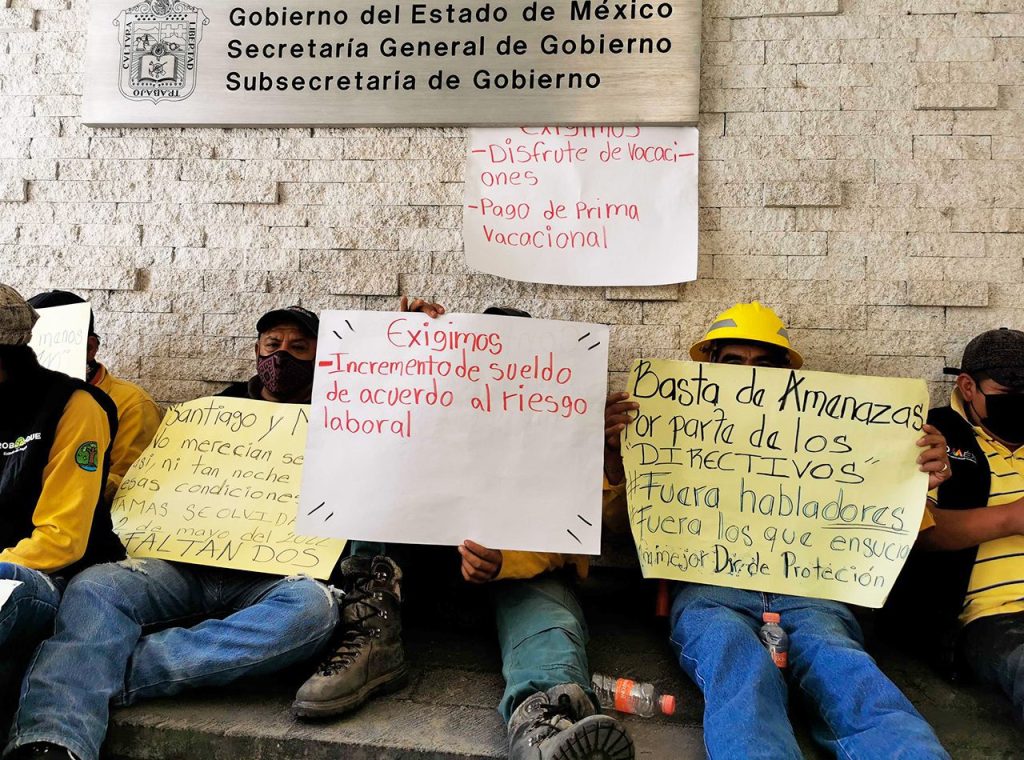 Gobierno del Estado de México
Secretaría General de Gobierno
Subsecretaría de Gobierno
CULTURA
LIBERTAD
TRABAJO
Exigimos
-Disfrute de vacaci-
ones
-Pago de Prima
Vacacional
manos
Santiago y
No merecian se
asi, ni tan noche
esas condiciones
JAMAS SE OLVIDA
de mayo del 2022
FALTAN DOS
Exigimos
-Incremento de sueldo
de acuerdo al riesgo
laboral
Basta de Amenazas
Por parte de los
"DIRECTIVOS"
#Fuera habladores
#Fuera los que ensucia
mejor Dir. de Proteción